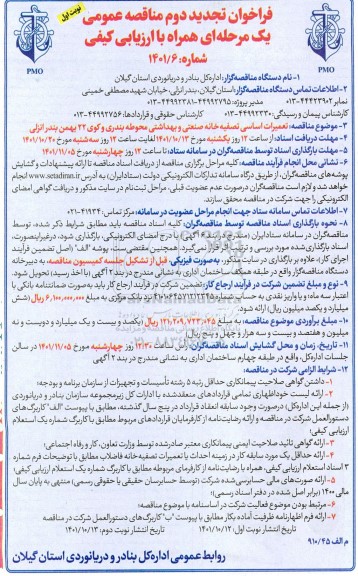 نوبت اول
فراخوان تجدید دوم مناقصه عمومی
یک مرحله‌ای همراه با ارزیابی کیفی
شماره: ۱۴۰۱/۶
PMO
PMO
۱- نام دستگاه مناقصه‌گزار: اداره‌کل بنادر و دریانوردی استان گیلان
۲- اطلاعات تماس دستگاه مناقصه‌گزار: استان گیلان، بندرانزلی، خیابان شهید مصطفی خمینی
نمابر ۴۴۴۲۳۹۰۲-۰۱۳ مدیر پروژه: ۴۴۹۹۲۷۹۵-۴۴۹۹۲۳۸۱-۰۱۳
کارشناس پیمان و رسیدگی: ۴۴۹۹۲۳۳۰-۰۱۳ کارشناس حقوقی و قراردادها: ۴۴۹۹۲۷۵۶-۰۱۳
۳- موضوع مناقصه: تعمیرات اساسی تصفیه‌خانه صنعتی و بهداشتی محوطه بندری و کوی ۲۲ بهمن بندر انزلی
۴- مهلت دریافت اسناد: از ساعت ۱۲ روز یکشنبه مورخ ۱۴۰۱/۱۰/۱۲ لغایت ساعت ۱۲ روز سه‌شنبه مورخ ۱۴۰۱/۱۰/۲۰
۵- مهلت بارگذاری اسناد توسط مناقصه‌گران در سامانه ستاد: تا ساعت ۱۲ روز چهارشنبه مورخ ۱۴۰۱/۱۱/۰۵
۶- نشانی محل انجام فرآیند مناقصه: کلیه مراحل برگزاری مناقصه از دریافت اسناد مناقصه تا ارائه پیشنهادات و گشایش
پوشه‌های مناقصه‌گران، از طریق درگاه سامانه تدارکات الکترونیکی دولت (ستادایران) به آدرس www.setadiran.ir انجام
خواهد شد و لازم است مناقصه‌گران درصورت عدم عضویت قبلی، مراحل ثبت‌نام در سایت مذکور و دریافت گواهی امضای
الکترونیکی را جهت شرکت در مناقصه محقق سازند.
۷- اطلاعات تماس سامانه ستاد جهت انجام مراحل عضویت در سامانه: مرکز تماس: ۴۱۹۳۴-۰۲۱
۸- نحوه بارگذاری اسناد مناقصه توسط مناقصه‌گران: کلیه اسناد مناقصه باید مطابق شرایط ذکر شده، توسط
مناقصه‌گران در سامانه ستادایران با درج امضای الکترونیکی، بارگذاری شود، درغیراینصورت،
اسناد بارگذاری شده مورد بررسی قرار نمی‌گیرد. همچنین مقتضی است پوشه "الف" (اصل تضمین فرآیند
ارجاع کار)، علاوه بر بارگذاری در سایت مذکور، به‌صورت فیزیکی، قبل از تشکیل جلسه کمیسیون مناقصه، به دبیرخانه
دستگاه مناقصه‌گزار واقع در طبقه همکف ساختمان اداری به نشانی مندرج در بند ۲ آگهی (با اخذ رسید) تحویل شود.
۹- نوع و مبلغ تضمین شرکت در فرآیند ارجاع کار: تضمین شرکت در فرآیند ارجاع کار باید به‌صورت ضمانتنامه بانکی با
اعتبار سه ماه و یا واریز نقدی به حساب شماره نزد بانک مرکزی به مبلغ ۶,۱۰۰,۰۰۰,۰۰۰ ریال (شش
میلیارد و یکصد میلیون ریال) ارائه شود.
۱۰- مبلغ برآوردی موضوع مناقصه: به مبلغ ۱۲۱,۲۰۹,۷۲۳,۰۴۵ ریال (یکصد و بیست و یک میلیارد و دویست و نه
میلیون و هفتصد و بیست و سه هزار و چهل و پنج ریال)
۱۱- تاریخ، زمان و محل گشایش اسناد مناقصه‌گران: ساعت ۱۲:۳۰ روز چهارشنبه مورخ ۱۴۰۱/۱۱/۰۵ در سالن
جلسات اداره‌کل، واقع در طبقه چهارم ساختمان اداری به نشانی مندرج در بند ۲ آگهی
۱۲- شرایط الزامی شرکت در مناقصه:
۱- داشتن گواهی صلاحیت پیمانکاری حداقل رتبه ۵ رشته تأسیسات و تجهیزات از سازمان برنامه و بودجه؛
۲- ارائه لیست خوداظهاری تمامی قراردادهای منعقدشده با ادارات کل زیرمجموعه سازمان بنادر و دریانوردی
(از جمله این اداره‌کل)، درصورت وجود سابقه انعقاد قرارداد در پنج سال گذشته، مطابق با پیوست "الف" کاربرگ‌های
دستورالعمل شرکت در مناقصه و ارائه رضایت‌نامه از کارفرمایان قراردادهای مربوط مطابق با کاربرگ شماره یک استعلام
ارزیابی کیفی؛
۳- ارائه گواهی تائید صلاحیت ایمنی پیمانکاری معتبر صادرشده توسط وزارت تعاون، کار و رفاه اجتماعی؛
۴- ارائه حداقل یک مورد سابقه کار در زمینه احداث یا تعمیرات تصفیه‌خانه فاضلاب مطابق با توضیحات فرم شماره
۳ اسناد استعلام ارزیابی کیفی، همراه با رضایت‌نامه از کارفرمای مربوطه مطابق با کاربرگ شماره یک استعلام ارزیابی کیفی؛
۵- ارائه صورت‌های مالی حسابرسی‌شده شرکت (توسط حسابرسان حقیقی یا حقوقی رسمی) منتهی به پایان سال
مالی ۱۴۰۰ (برابر اصل شده در دفتر اسناد رسمی)؛
۶- مرتبط بودن موضوع فعالیت شرکت در اساسنامه با موضوع مناقصه؛
۷- ارائه فرم اظهارنامه ظرفیت آماده بکار مطابق با پیوست "پ" کاربرگ‌های دستورالعمل شرکت در مناقصه
تاریخ انتشار نوبت اول: ۱۴۰۱/۱۰/۱۲ تاریخ انتشار نوبت دوم: ۱۴۰۱/۱۰/۱۳
م الف ۹۱۰/۴۵
روابط عمومی اداره‌کل بنادر و دریانوردی استان گیلان